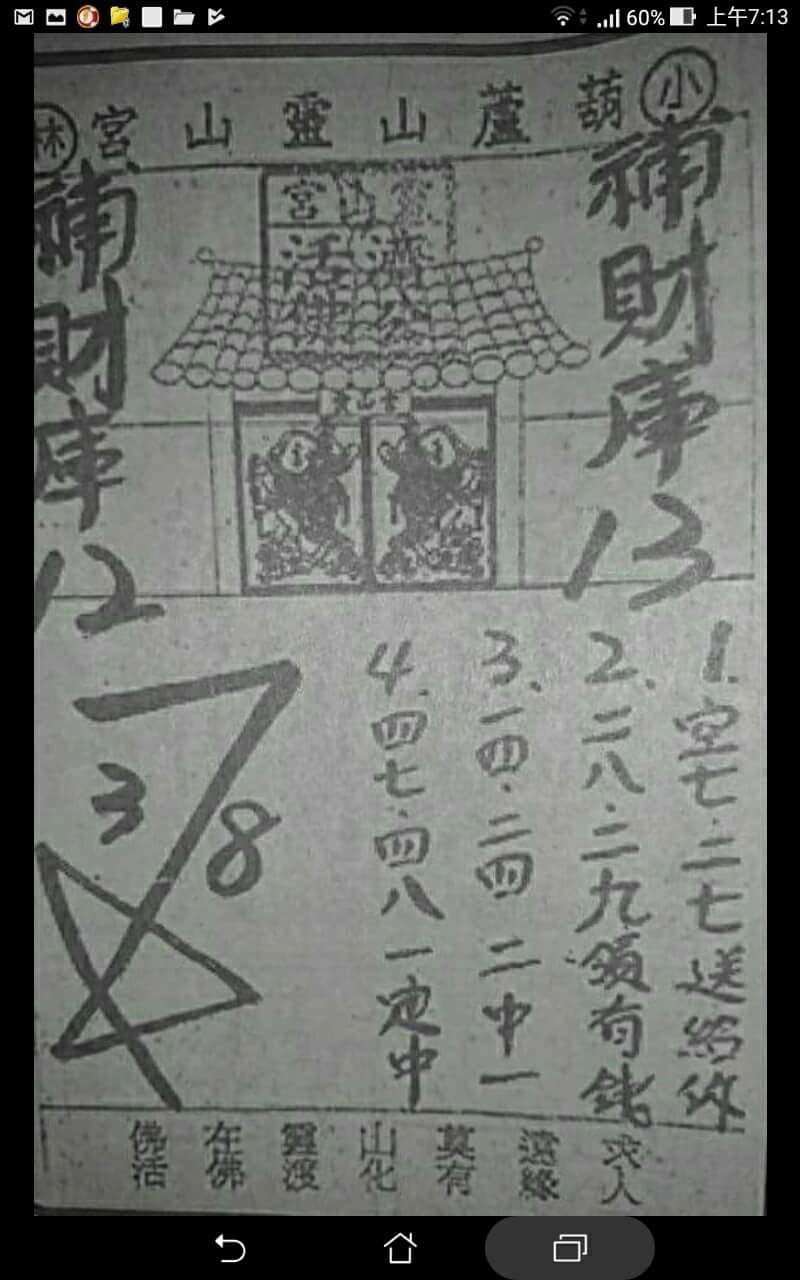 60% 上午7:13
葫蘆山靈山宮
小
林
補財庫
13
補財庫
12
靈山宮
濟公
活佛
1. 空七.二七送給你
2、二八.二九領有錢
3、一四.二四 二中一
4、四七.四八一定中
3
8
求人
遠緣
莫有
山化
靈渡
在佛
佛活